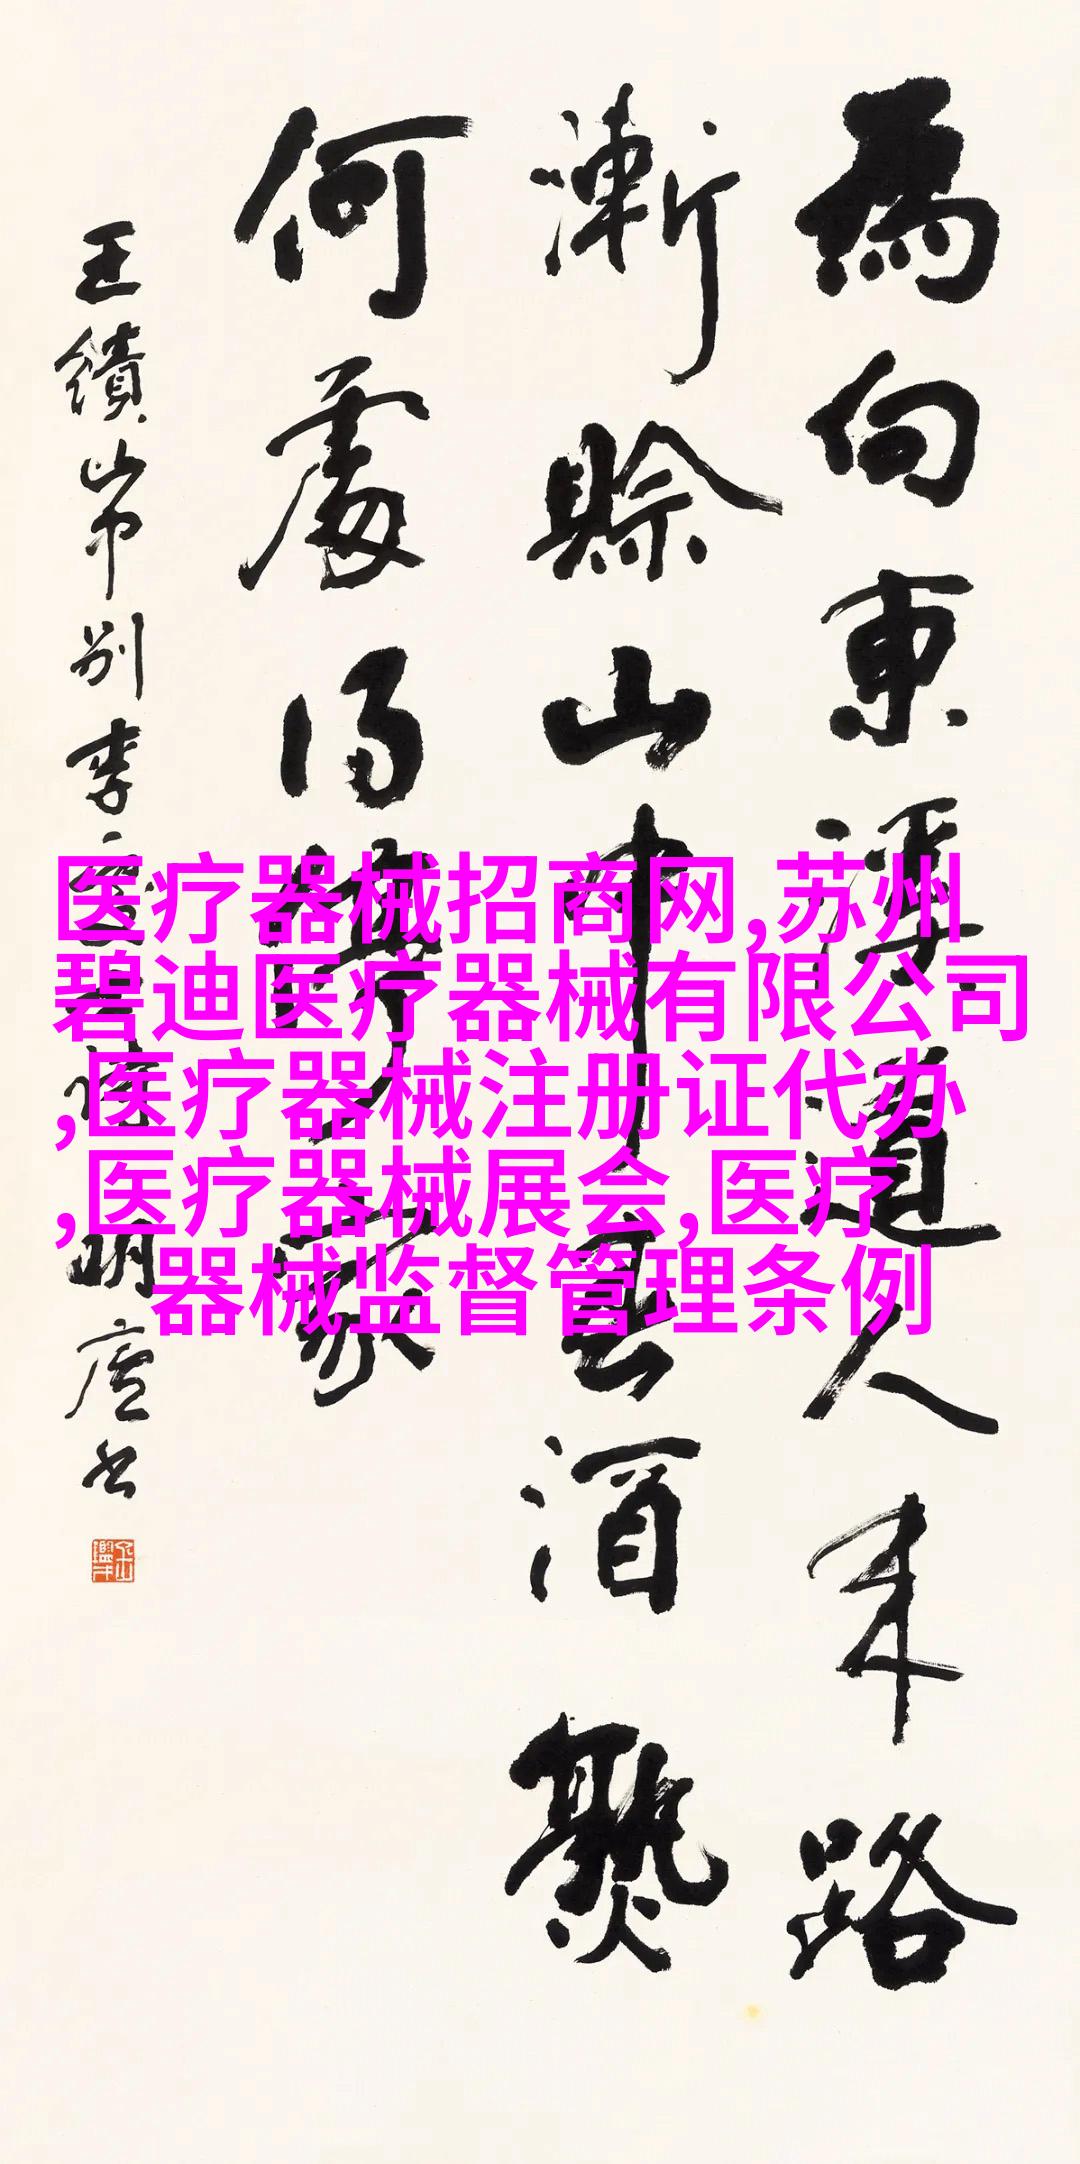 為向東溪道人來路
漸賒山中春酒熟
何處得停家
王績山中別李處士詩 明廬書
医疗器械招商网,苏州
碧迪医疗器械有限公司
,医疗器械注册证代办
,医疗器械展会,医疗
器械监督管理条例